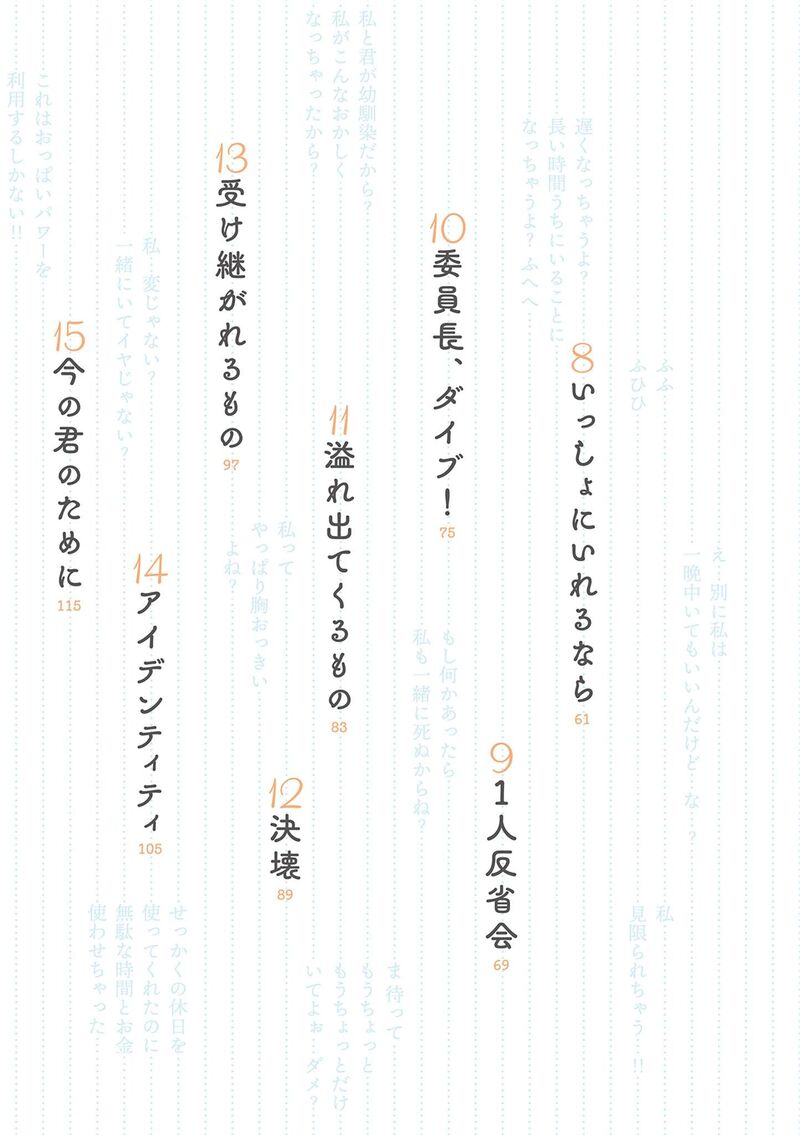 遅くなっちゃうよ?
長い時間うちにいることに
なっちゃうよ? ふへへ
ふふ
ふひひ
え 別に私は
一晩中いてもいいんだけど な ?
私
見限られちゃう !!
8
いっしょにいれるなら
61
9
1人反省会
69
10
委員長、ダイブ!
75
もし何かあったら
私も一緒に死ぬからね?
ま 待って
もうちょっと
もうちょっとだけ
いてよぉ ダメ?
私と君が幼馴染だから?
私がこんなおかしく
なっちゃったから?
11
溢れ出てくるもの
83
12
決壊
89
私って
やっぱり胸おっきい
よね?
13
受け継がれるもの
97
14
アイデンティティ
105
せっかくの休日を
使ってくれたのに
無駄な時間とお金
使わせちゃった
私 変じゃない?
一緒にいてイヤじゃない?
15
今の君のために
115
これはおっぱいパワーを
利用するしかない!!